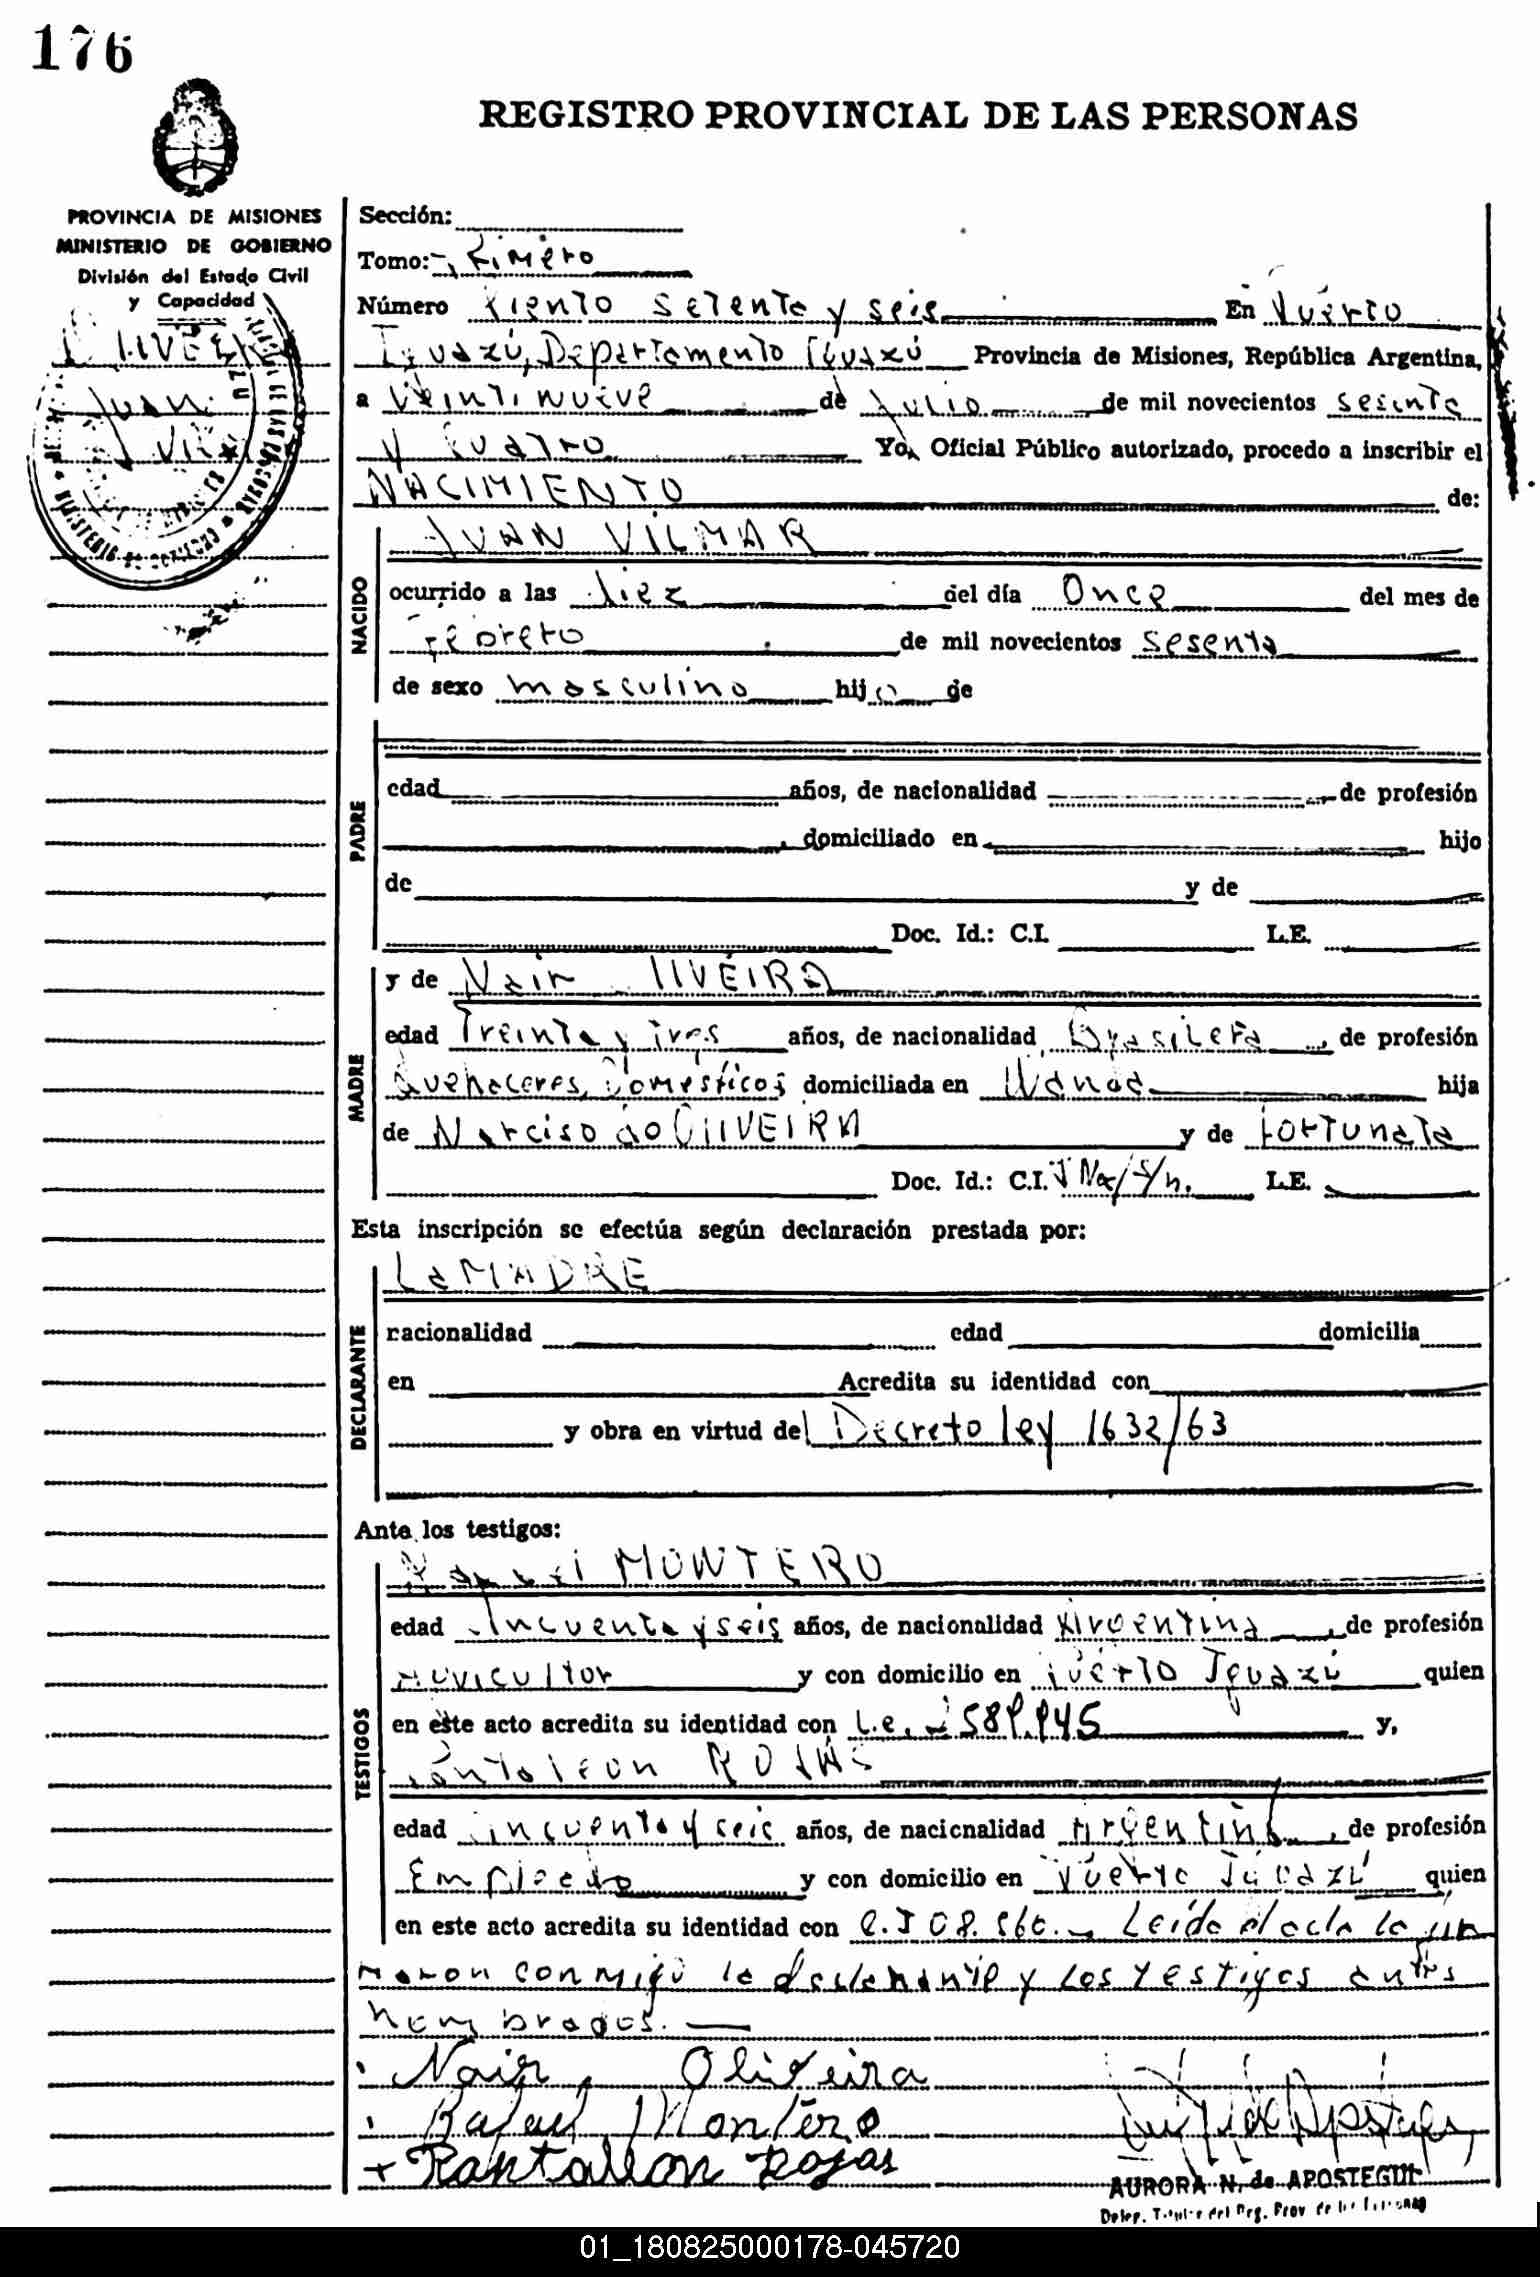 176
REGISTRO PROVINCIAL DE LAS PERSONAS
PROVINCIA DE MISIONES
MINISTERIO DE GOBIERNO
División del Estado Civil
y Capacidad
Juan
Sección:
Tomo: Primero
Número Ciento setenta y seis En Puerto
Iguazú, Departamento Iguazú Provincia de Misiones, República Argentina,
a Veintinueve de Julio de mil novecientos sesenta
y Cuatro Yo, Oficial Público autorizado, procedo a inscribir el
NACIMIENTO de:
NACIDO
JUAN VILMAR
ocurrido a las diez del día Once del mes de
Febrero de mil novecientos sesenta
de sexo masculino hijo de
PADRE
edad años, de nacionalidad de profesión
domiciliado en hijo
de y de
Doc. Id.: C.I. L.E.
MADRE
y de Nair OLIVEIRA
edad Treinta y tres años, de nacionalidad Brasilera, de profesión
Quehaceres Domésticos domiciliada en Wanda hija
de Narciso do OLIVEIRA y de Fortunata
Doc. Id.: C.I. L.E.
Esta inscripción se efectúa según declaración prestada por:
DECLARANTE
La MADRE
nacionalidad edad domicilia
en Acredita su identidad con
y obra en virtud del Decreto ley 1632/63
Ante los testigos:
TESTIGOS
MONTERO
edad Cincuenta y seis años, de nacionalidad Argentina, de profesión
y con domicilio en Puerto Iguazú quien
en este acto acredita su identidad con L.e. y,
Pantaleon ROJAS
edad Cincuenta y seis años, de nacionalidad Argentina, de profesión
Empleado y con domicilio en Puerto Iguazú quien
en este acto acredita su identidad con Leída el acta la fir
maron conmigo la declarante y los testigos antes
nombrados.
Nair Oliveira
Rafael Montero
+ Pantaleon Rojas
AURORA N. de APOSTEGUI
01_180825000178-045720